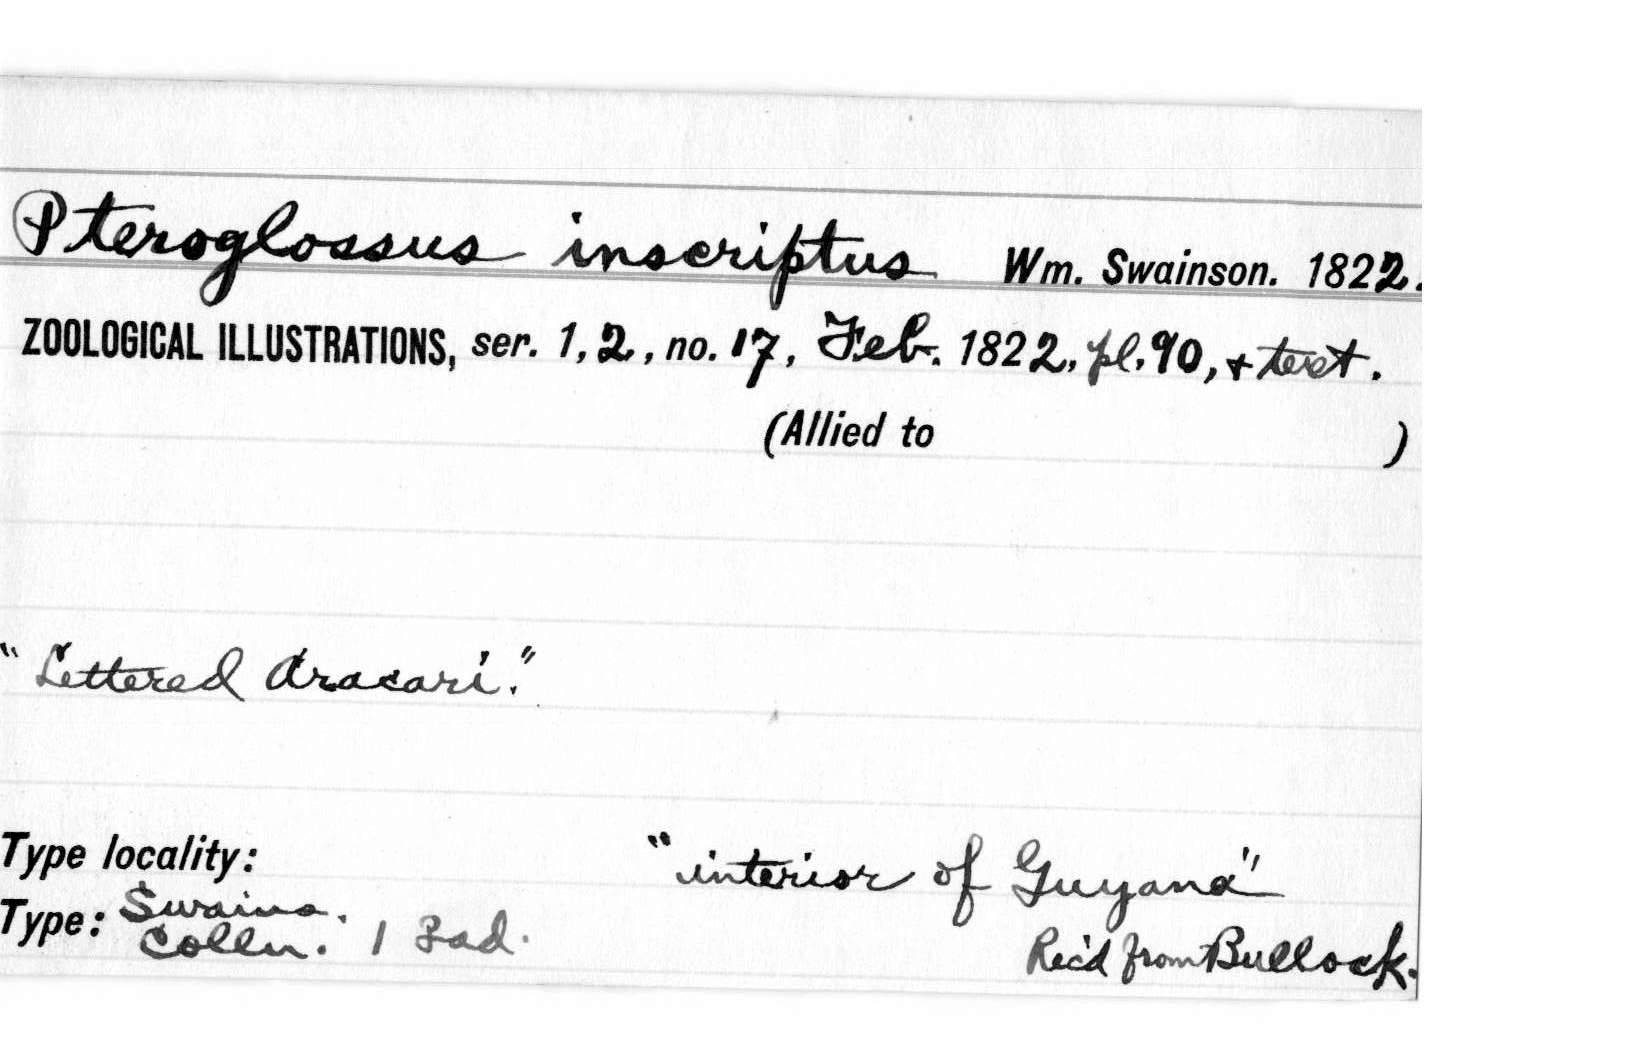 Pteroglossus inscriptus Wm. Swainson. 1822.
ZOOLOGICAL ILLUSTRATIONS, ser. 1, 2, no. 17, Feb. 1822, pl. 90, + text.
(Allied to )
"Lettered Aracari."
Type locality: "interior of Guyana"
Type: Swains. Colln. 1 ad.
Rec'd from Bullock.